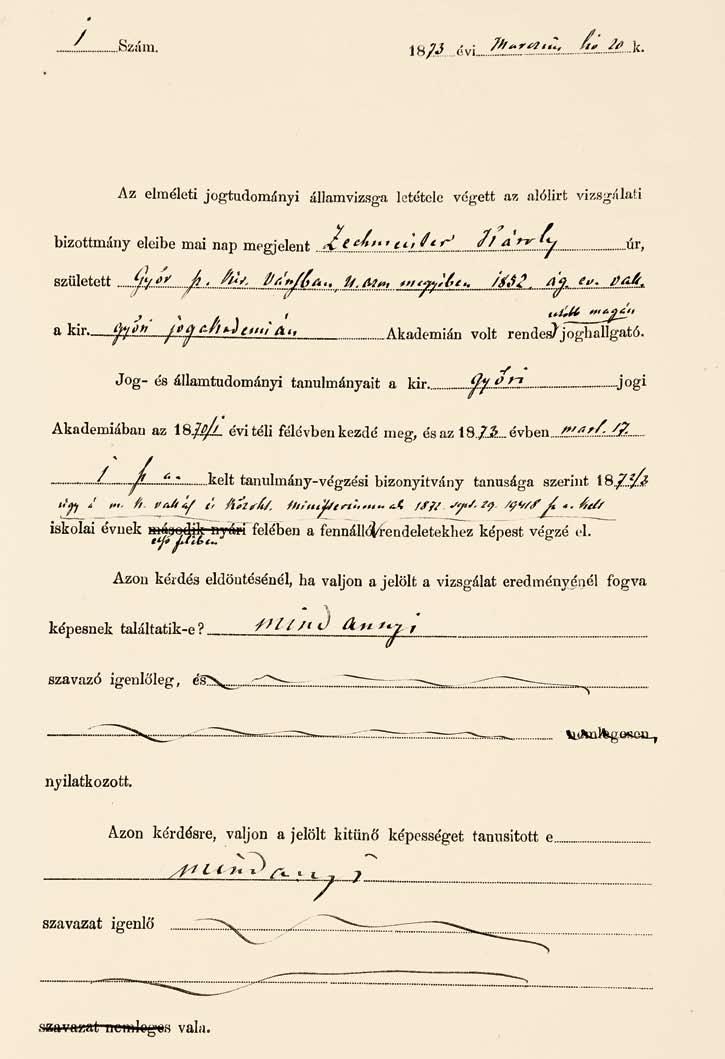 1 Szám. 1873 évi Marczius hó 20 k.
Az elméleti jogtudományi államvizsga letétele végett az alólirt vizsgálati
bizottmány eleibe mai nap megjelent Zechmeister Károly úr,
született Győr sz. kir. Városban, u. azon megyében 1852. ág. ev. vall.
utóbb magán
a kir. győri jogakadémián Akademián volt rendes joghallgató.
Jog- és államtudományi tanulmányait a kir. Győri jogi
Akademiában az 1870/1 évi téli félévben kezdé meg, és az 1873 évben mart. 17.
1 sz. a. kelt tanulmány-végzési bizonyitvány tanusága szerint 1872/3
úgy a m. k. vallás és közokt. Ministeriumnak 1872 sept. 29. 19418 sz. a. kelt
iskolai évnek második nyári felében a fennálló rendeletekhez képest végzé el.
első felében
Azon kérdés eldöntésénél, ha valjon a jelölt a vizsgálat eredményénél fogva
képesnek találtatik-e? mind annyi
szavazó igenlőleg, és
nemlegesen
nyilatkozott.
Azon kérdésre, valjon a jelölt kitünő képességet tanusitott e
mindannyi
szavazat igenlő
szavazat nemleges vala.